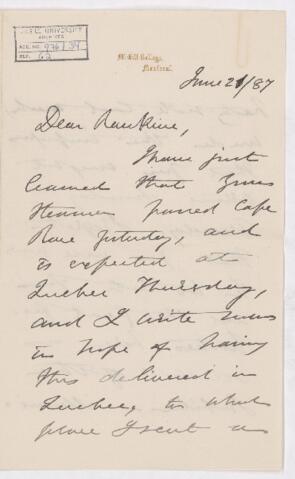 McGILL UNIVERSITY
ARCHIVES
ACC. NO. 976/34
REF. 62
McGill College,
Montreal.
June 21/87
Dear Rankine,
I have just
learned that your
steamer passed Cape
Race yesterday, and
is expected at
Quebec Thursday,
and I write now
in hope of having
this delivered in
Quebec, to which
place I sent a